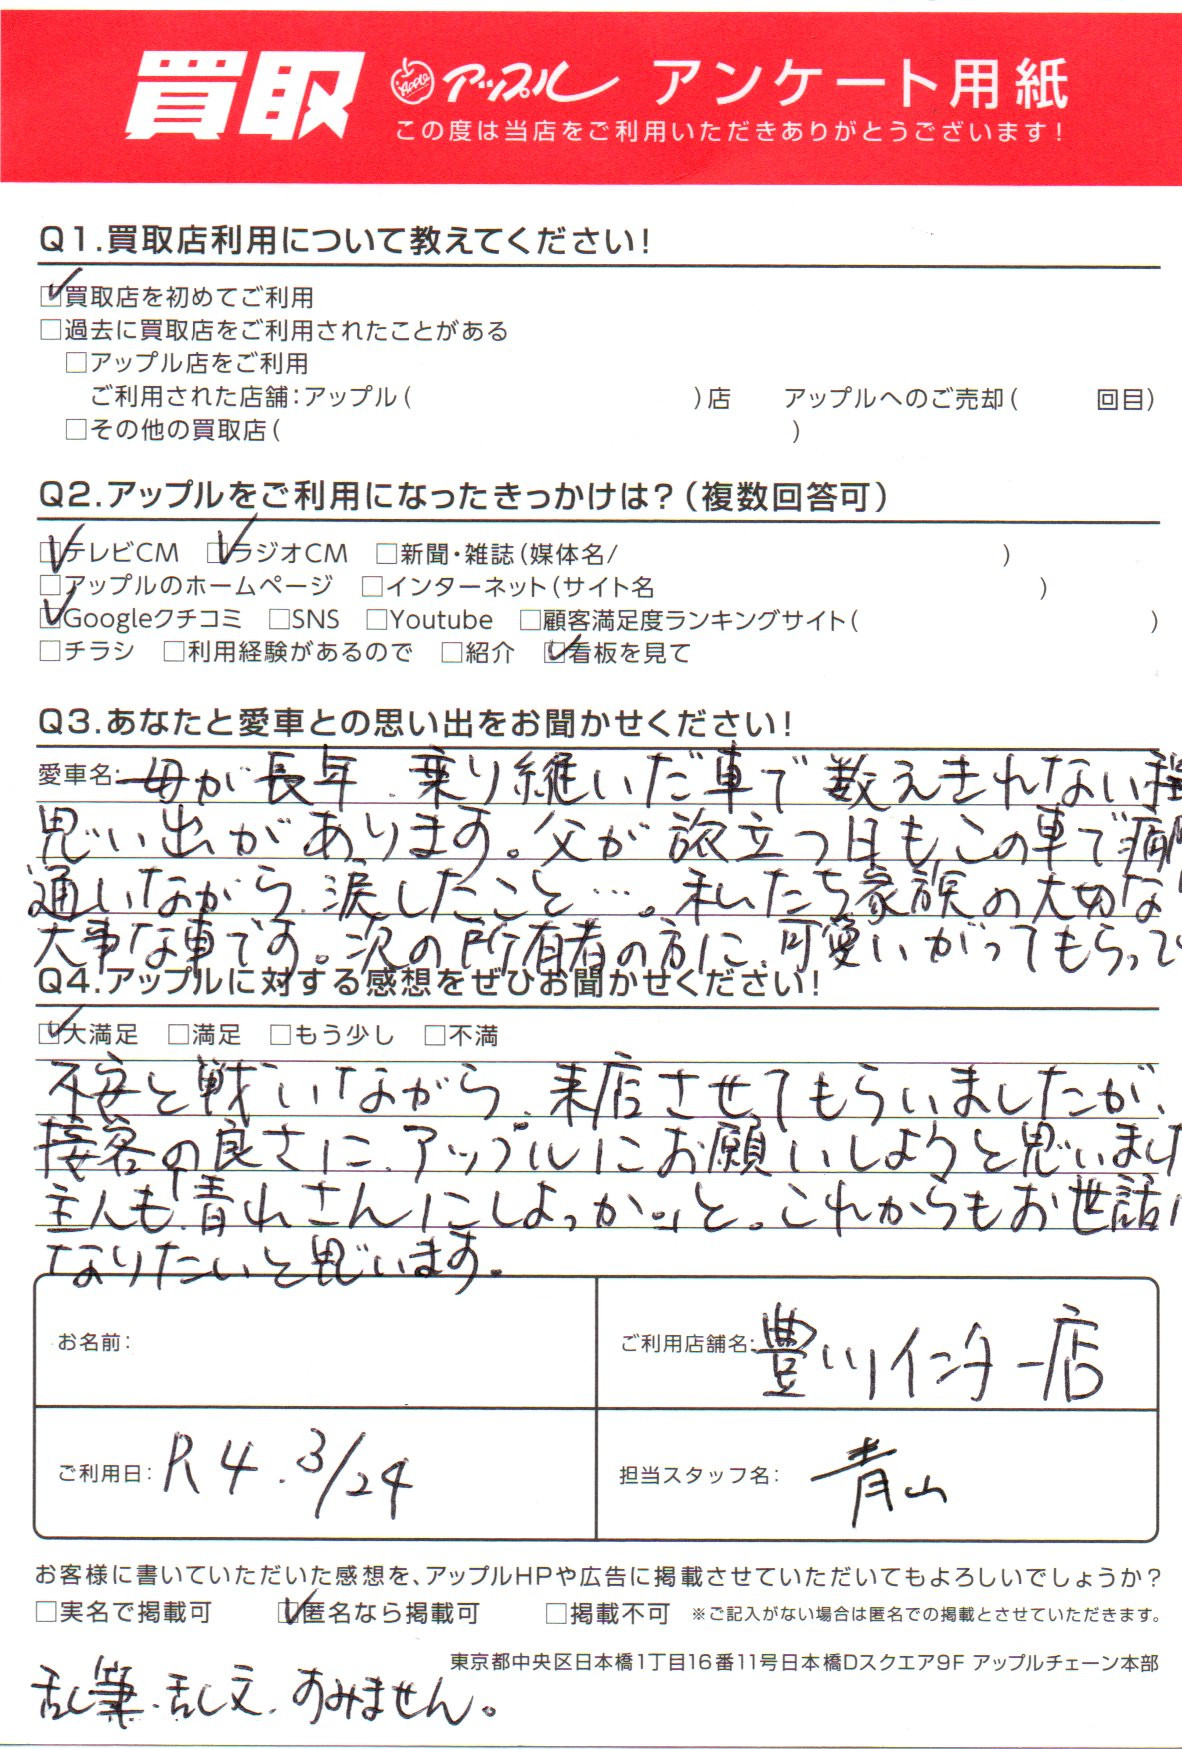 買取 Apple アップル アンケート用紙
この度は当店をご利用いただきありがとうございます!
Q1.買取店利用について教えてください!
買取店を初めてご利用
□過去に買取店をご利用されたことがある
□アップル店をご利用
ご利用された店舗:アップル( )店 アップルへのご売却( 回目)
□その他の買取店( )
Q2.アップルをご利用になったきっかけは?(複数回答可)
テレビCM ラジオCM □新聞・雑誌(媒体名/ )
□アップルのホームページ □インターネット(サイト名 )
Googleクチコミ □SNS □Youtube □顧客満足度ランキングサイト( )
□チラシ □利用経験があるので □紹介 看板を見て
Q3.あなたと愛車との思い出をお聞かせください!
愛車名: 母が長年、乗り継いだ車で数えきれない程
思い出があります。父が旅立つ日も、この車で病
通いながら、涙したこと…。私たち家族の大切な
大事な車です。次の所有者の方に、可愛いがってもらって
Q4.アップルに対する感想をぜひお聞かせください!
大満足 □満足 □もう少し □不満
不安と戦いながら、来店させてもらいましたが、
接客の良さに、アップルにお願いしようと思いまし
主人も「青山さんにしよっか。」と。これからもお世話に
なりたいと思います。
お名前:
ご利用店舗名: 豊川インター店
ご利用日: R4.3/24
担当スタッフ名: 青山
お客様に書いていただいた感想を、アップルHPや広告に掲載させていただいてもよろしいでしょうか?
□実名で掲載可 匿名なら掲載可 □掲載不可 ※ご記入がない場合は匿名での掲載とさせていただきます。
東京都中央区日本橋1丁目16番11号日本橋Dスクエア9F アップルチェーン本部
乱筆、乱文、すみません。